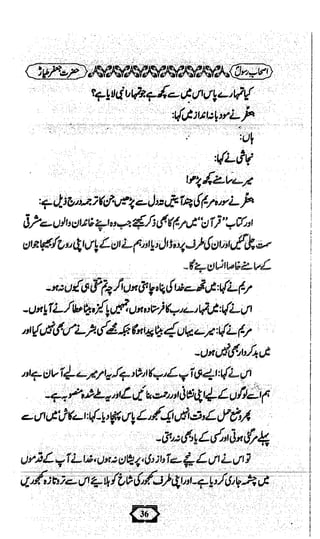 اصحابِ رسولؐ
حضرت جعفر طیارؓ
کیا تمہارے پاس اس میں سے کچھ ہے جو تمہارا نبی لایا ہے؟
جعفرؓ نے مودبانہ انداز میں کہا:
ہاں:
نجاشی نے کہا:
میرے سامنے کچھ پڑھو!
جعفرؓ نے سورہ مریم کی چند آیتیں تہ دل سے پڑھیں جن کا ترجمہ درج ذیل ہے:
اور کتاب "قرآن" میں مریم کا بھی ذکر کیجئے جب وہ اپنے خاندان والوں سے مشرقی
سمت چلی گئیں اور ان کی طرف پردہ ڈال دیا اور ہم نے ان کے پاس اپنی روح کو بھیجا جو ان
کے سامنے خاصا انسان بنے گا۔
مریم نے کہا: میں تجھ سے خدا کی پناہ چاہتی ہوں اگرچہ تم متقی ہی کیوں نہ ہو۔
اس نے کہا: میں تمہارے رب کا فرستادہ ہوں، تمہیں پاکیزہ بیٹا عطا کرنے آیا ہوں۔
مریم نے کہا: میرے یہاں کیسے بیٹا پیدا ہوگا جبکہ مجھے کسی بشر نے مس بھی نہیں کیا اور
میں بدکردار بھی نہیں ہوں۔
اس نے کہا: ایسے ہی آپ کے رب کا ارشاد ہے کہ یہ امر میرے لیے آسان ہے اور
ہم اسے لوگوں کے لیے اپنی نشانی اور رحمت بنائیں گے اور یہ طے شدہ منصوبہ ہے۔
پھر وضع حمل کے وقت انہیں ایک کھجور کے پاس پہنچا دیا۔ کہا: اے کاش میں اس سے
پہلے مر گئی ہوتی اور کسی کے یاد بھی نہ رہتی۔
تو اس نے اس کے نیچے سے آواز دی، پریشان نہ ہوں، خدا نے آپ کے قدموں
میں چشمہ جاری کر دیا ہے۔ اور اپنی طرف کھجور کی شاخ کو ہلائیے اس سے تروتازہ کھجوریں
36